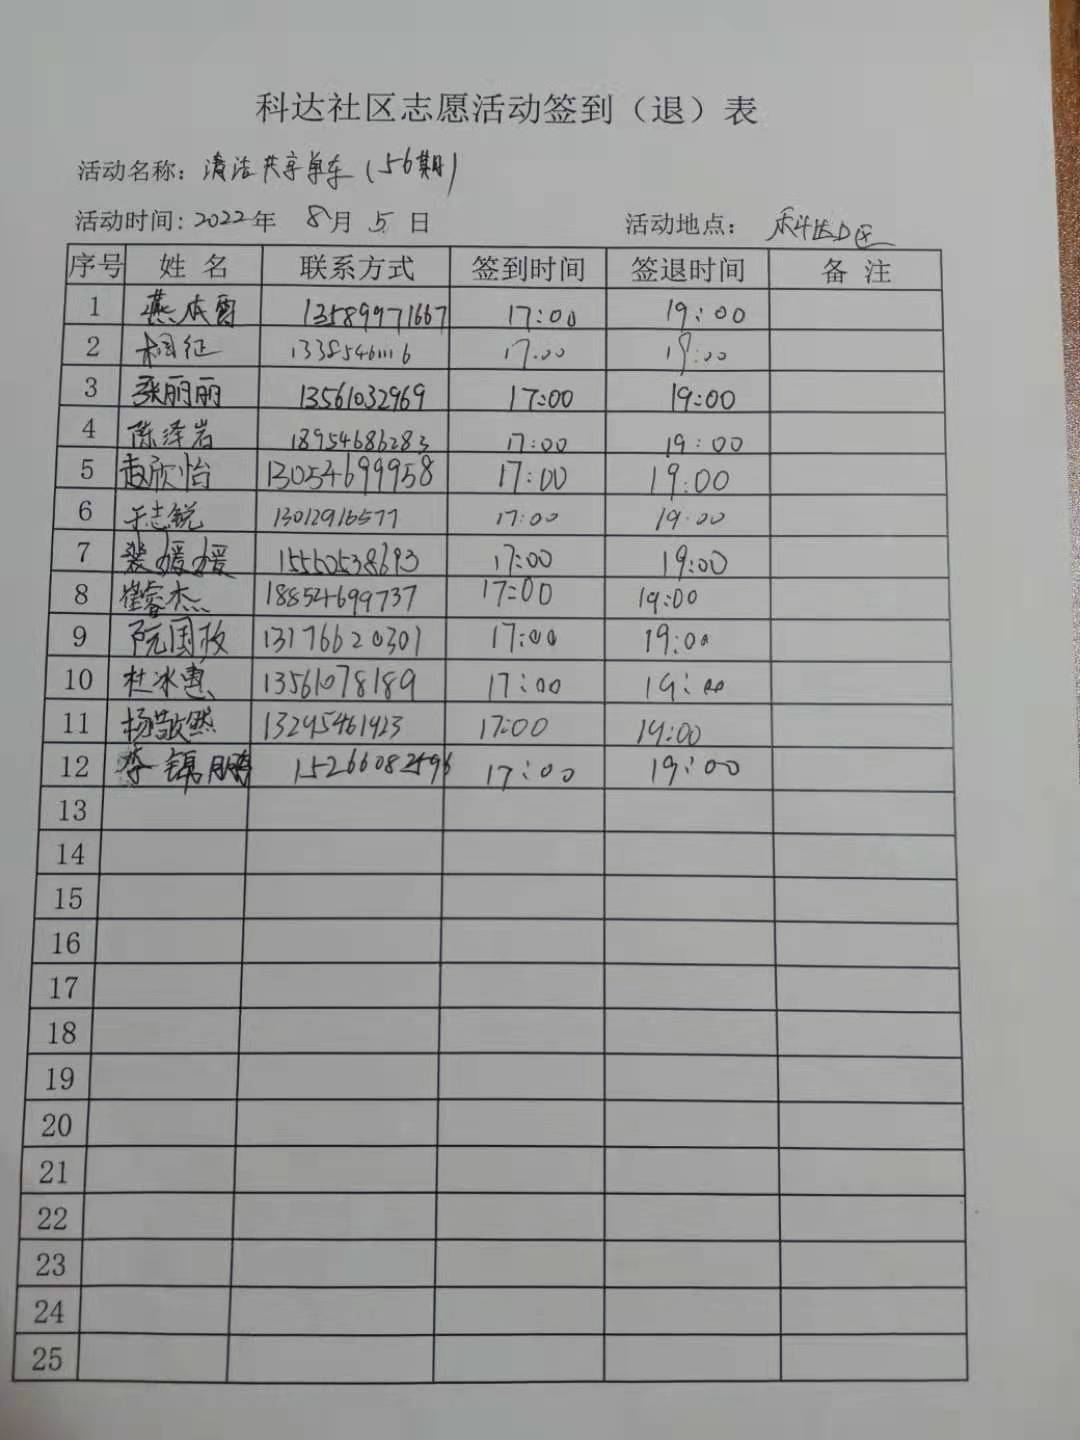 科达社区志愿活动签到（退）表
活动名称：清洁共享单车（56期）
活动时间：2022年 8月 5日 活动地点：科达社区
序号 姓名 联系方式 签到时间 签退时间 备注
1 燕 13589971667 17:00 19:00
2 相征 13385461116 17:00 19:00
3 张丽丽 13561032969 17:00 19:00
4 陈泽岩 18954686283 17:00 19:00
5 赵欣怡 13054699958 17:00 19:00
6 于志锐 17:00 19:00
7 裴媛媛 17:00 19:00
8 崔睿杰 18854699737 17:00 19:00
9 阮国放 13176620301 17:00 19:00
10 杜冰惠 13561078189 17:00 19:00
11 杨敬然 13295461923 17:00 19:00
12 李锦鹏 15266082596 17:00 19:00
13
14
15
16
17
18
19
20
21
22
23
24
25